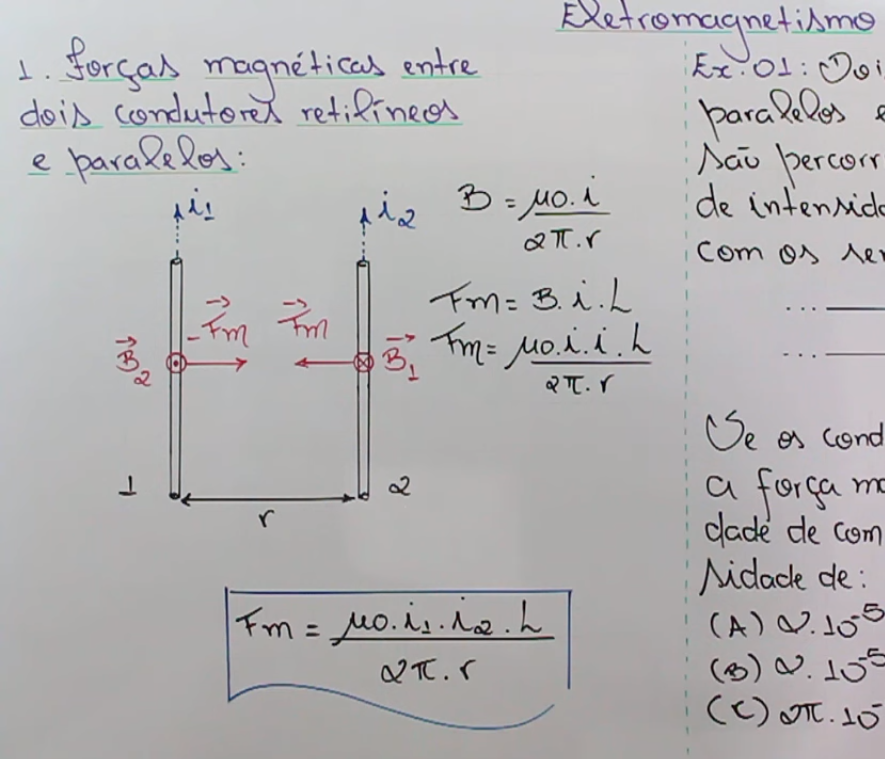 Eletromagnetismo
1. Forças magnéticas entre
dois condutores retilíneos
e paralelos:
i₁
i₂
B = μ0.i
2π.r
Fm = B.i.L
Fm = μ0.i.i.L
2π.r
B₂
-Fm
Fm
B₁
1
2
r
Fm = μ0.i₁.i₂.L
2π.r
Ex.01: Doi
paralelos e
são percorr
de intensida
com os sen
...
...
Se os cond
a força ma
dade de com
sidade de:
(A) 2.10⁻⁵
(B) 2.10⁻⁵
(C) 2π.10⁻